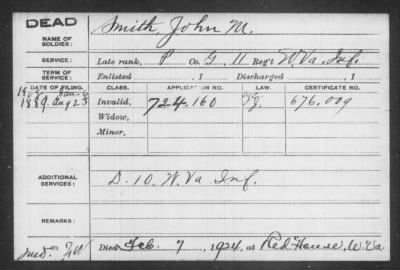 DEAD
NAME OF SOLDIER: Smith, John M.
SERVICE: Late rank, P Co. G, 11 Reg't W.Va. Inf.
TERM OF SERVICE: Enlisted , 1 Discharged , 1
DATE OF FILING. CLASS. APPLICATION NO. LAW. CERTIFICATE NO.
1889. Aug 23 Invalid, 724,160 676.009
Widow,
Minor,
ADDITIONAL SERVICES: D. 10. W. Va Inf.
REMARKS:
Died Feb. 7, 1924, at Red House, W.Va